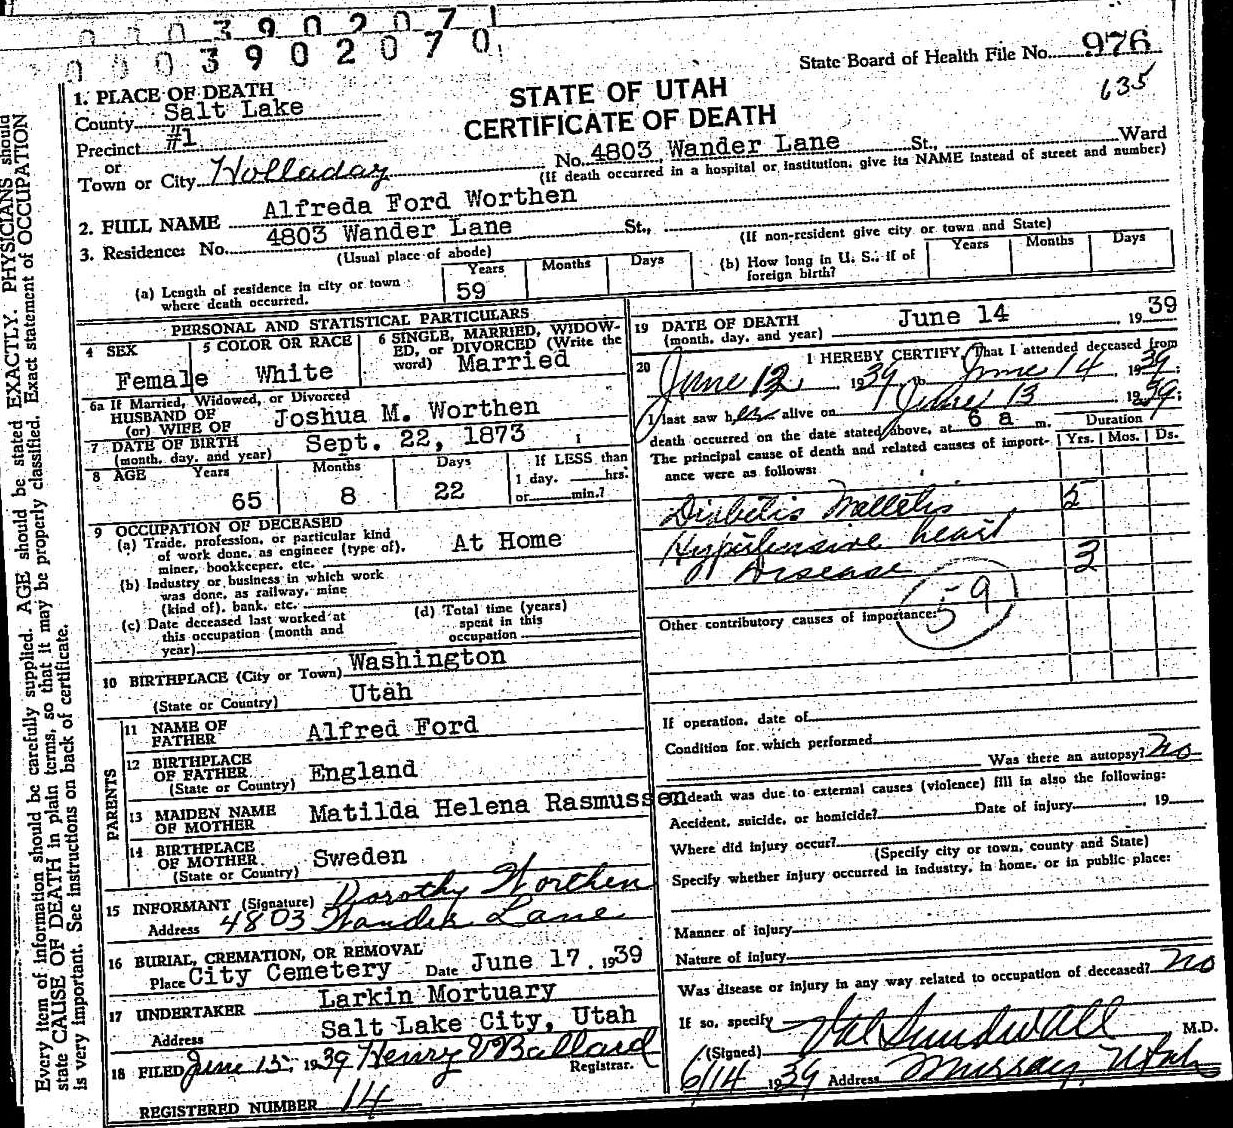 0003902071
0003902070
State Board of Health File No. 976
635
STATE OF UTAH
CERTIFICATE OF DEATH
1. PLACE OF DEATH
County Salt Lake
Precinct #1
or
Town or City Holladay No. 4803 Wander Lane St., Ward
(If death occurred in a hospital or institution, give its NAME instead of street and number)
2. FULL NAME Alfreda Ford Worthen
3. Residence: No. 4803 Wander Lane St.,
(Usual place of abode) (If non-resident give city or town and State)
(a) Length of residence in city or town where death occurred. Years 59 Months Days
(b) How long in U. S., if of foreign birth? Years Months Days
PERSONAL AND STATISTICAL PARTICULARS
4 SEX Female
5 COLOR OR RACE White
6 SINGLE, MARRIED, WIDOWED, or DIVORCED (Write the word) Married
6a If Married, Widowed, or Divorced
HUSBAND OF
(or) WIFE OF Joshua M. Worthen
7 DATE OF BIRTH
(month, day, and year) Sept. 22, 1873
8 AGE Years 65 Months 8 Days 22 If LESS than
1 day, hrs.
or min.?
9 OCCUPATION OF DECEASED
(a) Trade, profession, or particular kind
of work done, as engineer (type of),
miner, bookkeeper, etc. At Home
(b) Industry or business in which work
was done, as railway, mine
(kind of), bank, etc.
(c) Date deceased last worked at
this occupation (month and
year)
(d) Total time (years)
spent in this
occupation
10 BIRTHPLACE (City or Town) Washington
(State or Country) Utah
PARENTS
11 NAME OF
FATHER Alfred Ford
12 BIRTHPLACE
OF FATHER
(State or Country) England
13 MAIDEN NAME
OF MOTHER Matilda Helena Rasmussen
14 BIRTHPLACE
OF MOTHER
(State or Country) Sweden
15 INFORMANT (Signature) Dorothy Worthen
Address 4803 Wander Lane
16 BURIAL, CREMATION, OR REMOVAL
Place City Cemetery Date June 17. 1939
17 UNDERTAKER Larkin Mortuary
Address Salt Lake City, Utah
18 FILED June 15, 1939 Henry V Ballard
Registrar.
REGISTERED NUMBER 14
19 DATE OF DEATH
(month, day, and year) June 14 1939
20 I HEREBY CERTIFY, That I attended deceased from
June 12 1939 to June 14 1939;
I last saw her alive on June 13 1939;
death occurred on the date stated above, at 6 a m. Duration
The principal cause of death and related causes of importance were as follows: Yrs. Mos. Ds.
Diabetis Melletis 5
Hypertensive heart
Disease 3
59
Other contributory causes of importance:
If operation, date of
Condition for which performed
Was there an autopsy? no
If death was due to external causes (violence) fill in also the following:
Accident, suicide, or homicide? Date of injury 19
Where did injury occur?
(Specify city or town, county and State)
Specify whether injury occurred in industry, in home, or in public place:
Manner of injury
Nature of injury
Was disease or injury in any way related to occupation of deceased? no
If so, specify
(Signed) Val Sundwall M.D.
6/14 1939 Address Murray, Utah
Every item of information should be carefully supplied. AGE should be stated EXACTLY. PHYSICIANS should
state CAUSE OF DEATH in plain terms, so that it may be properly classified. Exact statement of OCCUPATION
is very important. See instructions on back of certificate.